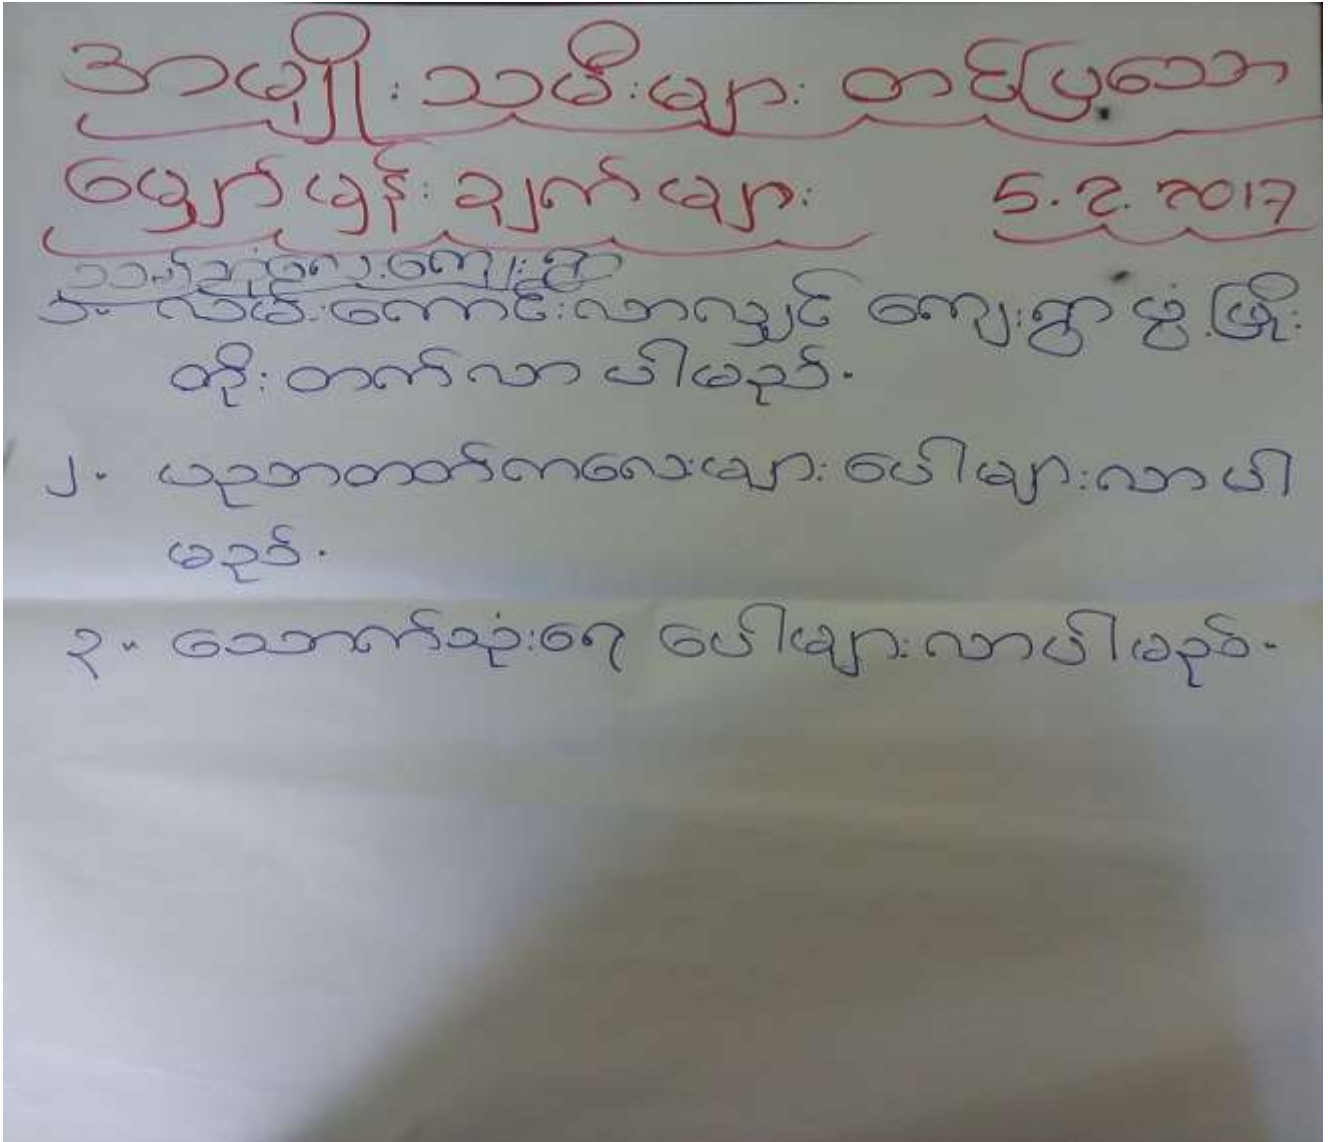 အမျိုးသမီးများ တင်ပြသော
မျှော်မှန်းချက်များ 5.2.2017
ကျေးရွာ
၁။ လမ်းကောင်းလာလျှင် ကျေးရွာဖွံ့ဖြိုး
တိုးတက်လာပါမည်။
၂။ ပညာတတ်ကလေးများ ပေါများလာပါ
မည်။
၃။ သောက်သုံးရေ ပေါများလာပါမည်။